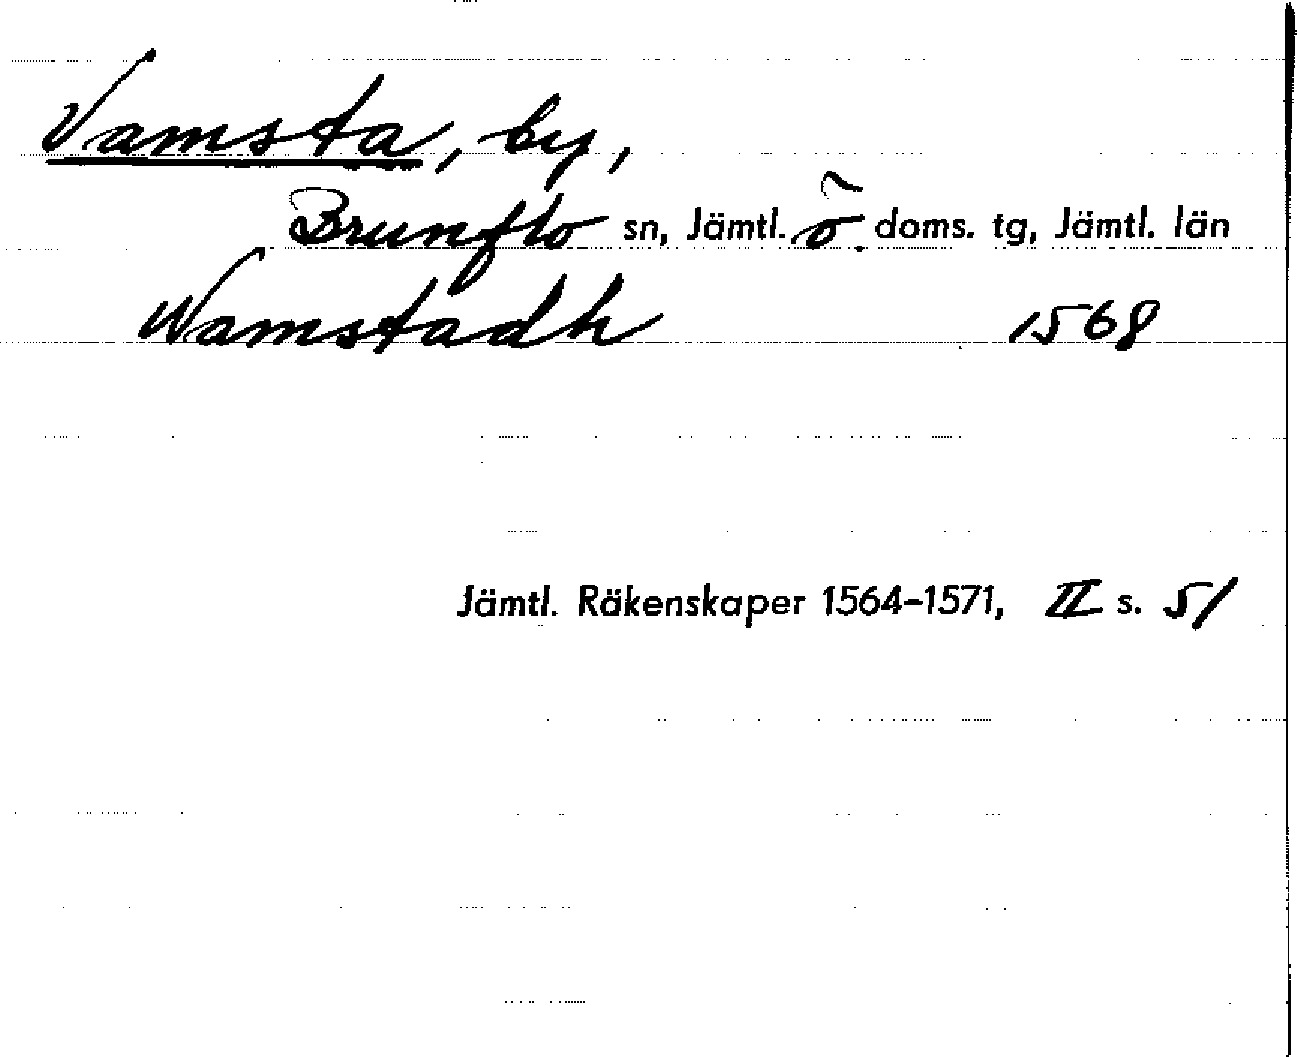 Vamsta, by,
Brunflo sn, Jämtl. ö. doms. tg, Jämtl. län
Wamstadh 1568
Jämtl. Räkenskaper 1564-1571, II s. 51